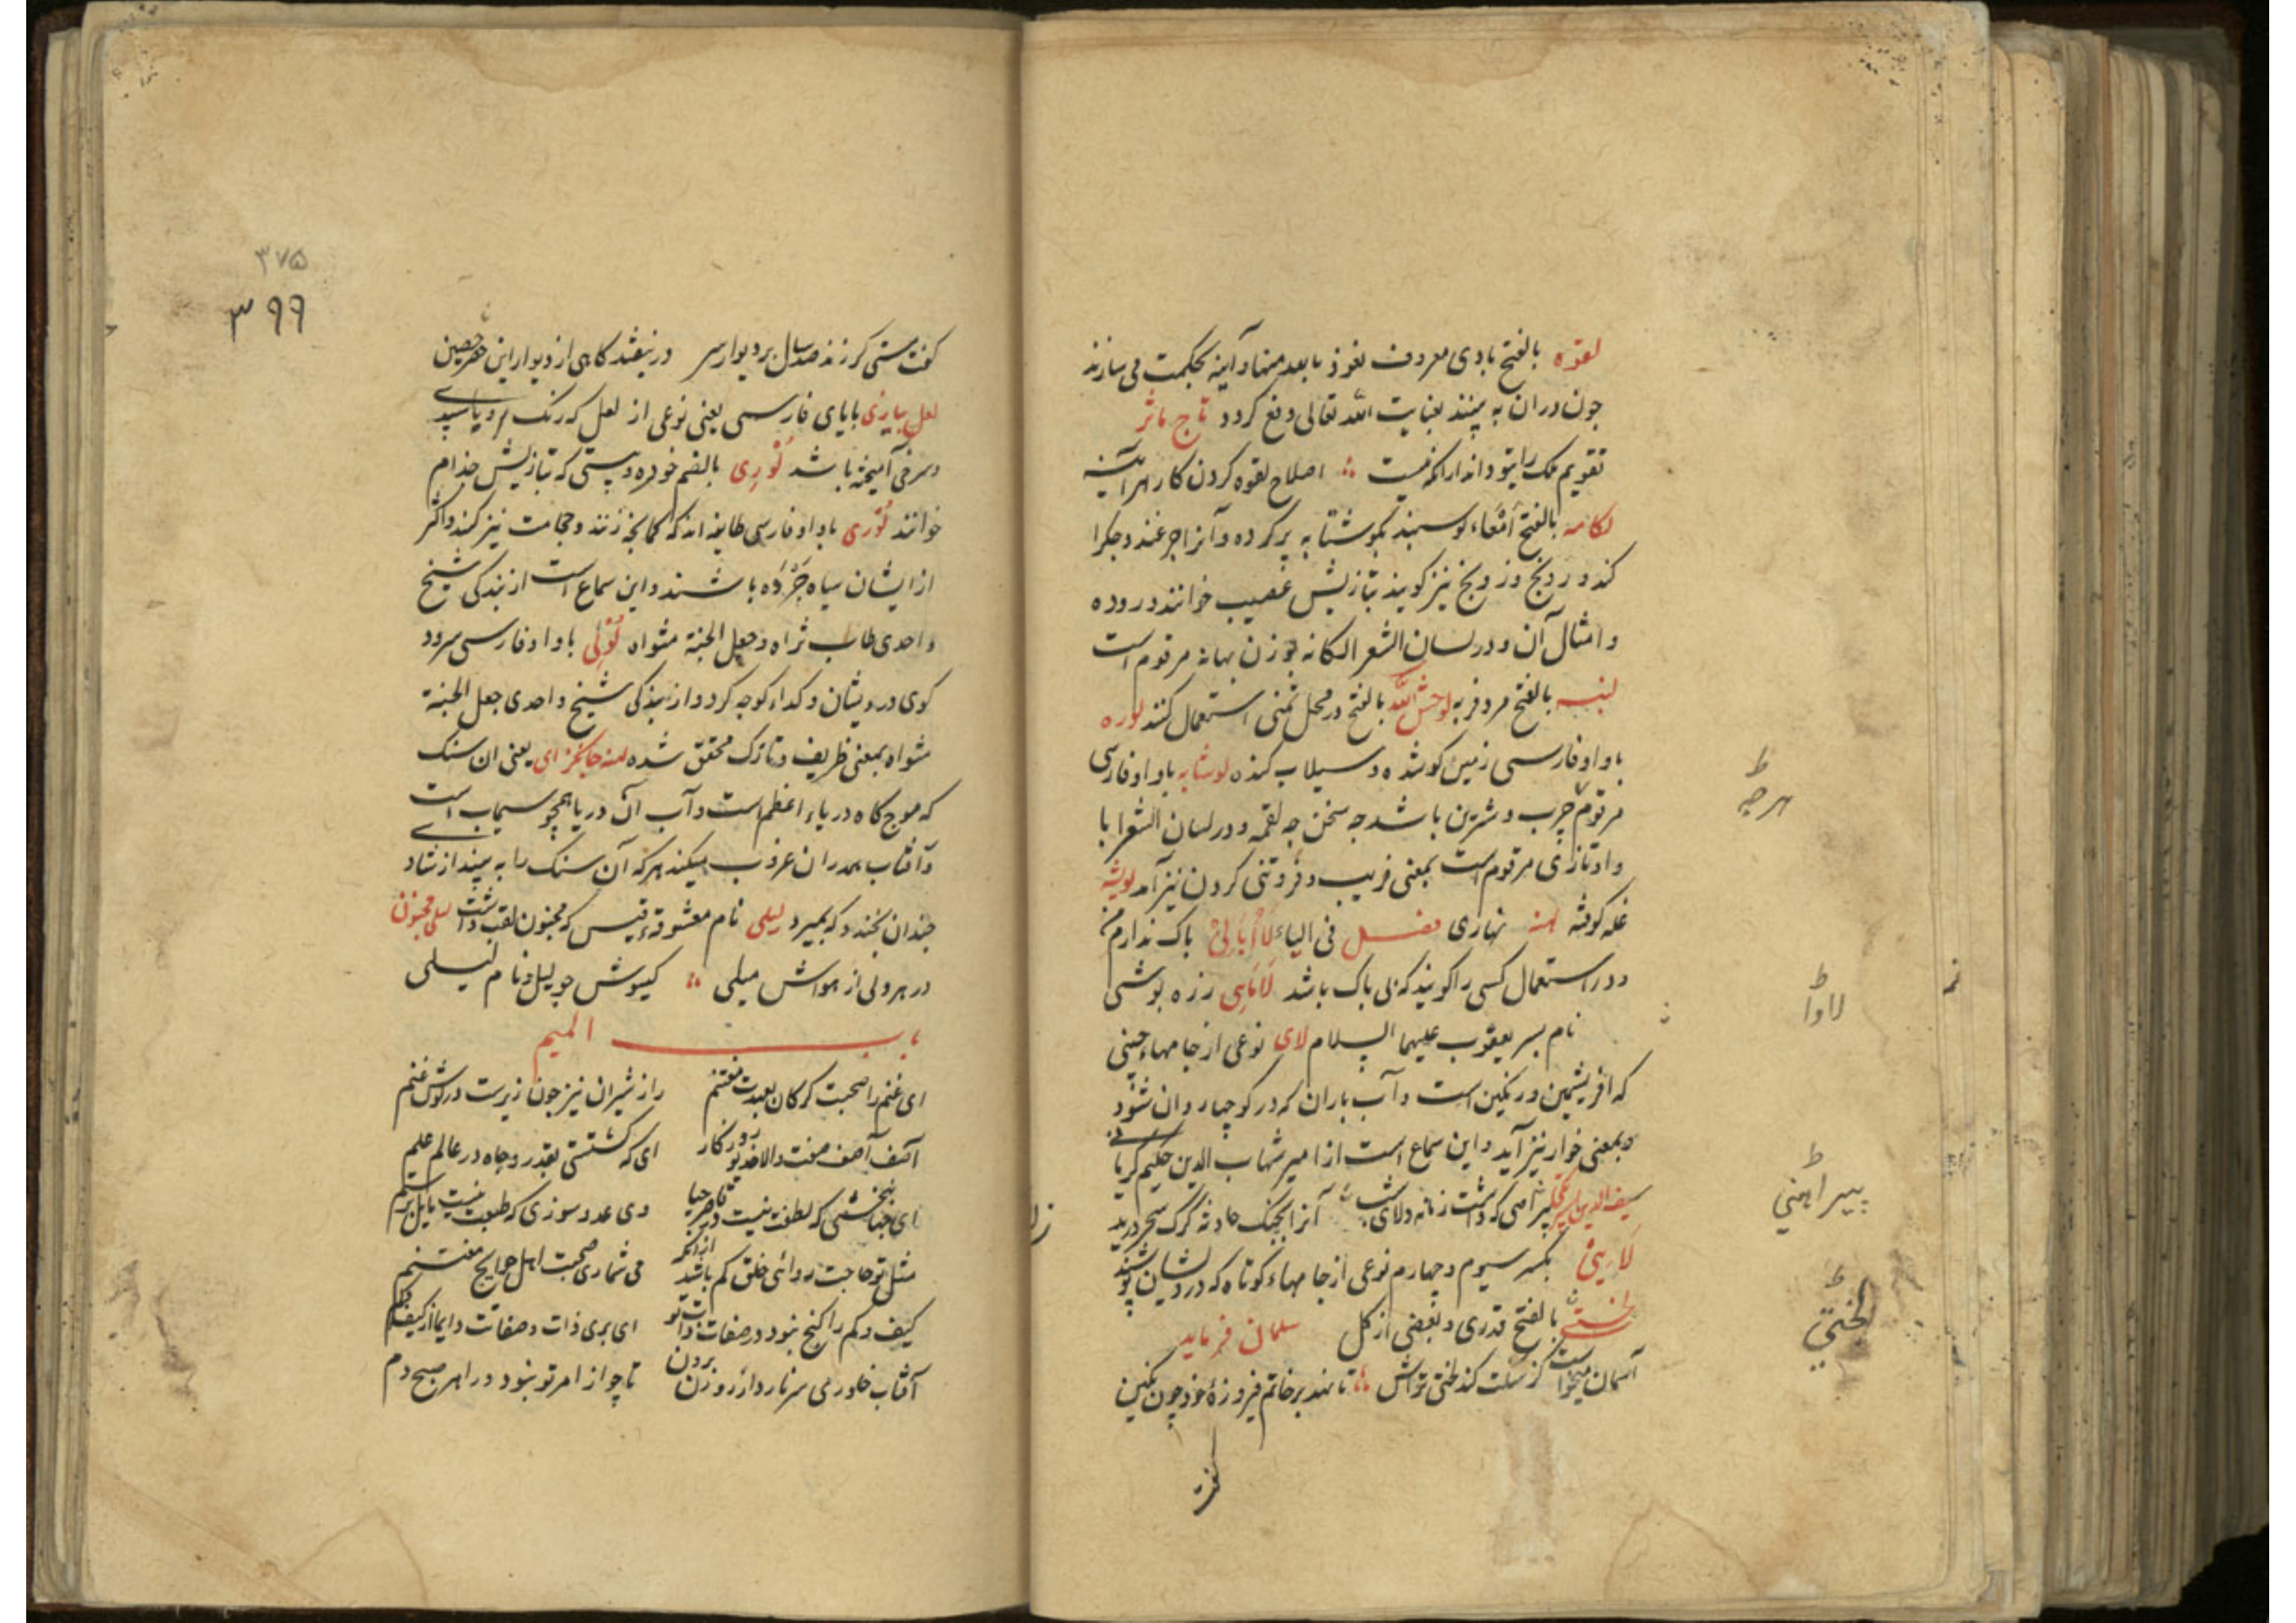 لقوه بالفتح بادی معروف نعوذ بالله منها و آینه بحکمت می سازند
چون دران به بینند بعنایت الله تعالی دفع کردد تاج ماثر
تقویم ملک را بتو داند اراکه نیست اصلاح لقوه کردن کار هر آینه
لکامه بالفتح امعاء کوسپند بکوشتابه پر کرده و آنرا جرغند و جکرا
کند و رونج و زویج نیز کویند بتازیش عصیب خوانند و روده
و امثال آن و در لسان الشعرا لکانه بوزن بهانه مرقوم است
لنبه بالفتح مرد فربه لوحش الله بالفتح در محل تمنی استعمال کنند لوره
باواو فارسی زمین کو شده و سیلاب کنده لوشابه باواو فارسی
مرقوم چرب و شیرین باشد چه سخن چه لقمه و در لسان الشعرا با
واو تازی مرقوم است بمعنی فریب و فروتنی کردن نیز آمد لویشه
غله کوفته لهنه نهاری فصل فی الیاء لا ابالی باک ندارم
و در استعمال کسی را کویند که بی باک باشد لاهی زره پوشی
نام پسر یعقوب علیهما السلام لای نوعی از جامهاء چینی
که ابریشمین و رنکین است و آب باران که در کوچها روان شود
و بمعنی خوار نیز آید و این سماع است از امیر شهاب الدین حکیم کرمانی
سیف الدین
لایی بکسر سیوم و چهارم نوعی از جامهاء کوتاه که درویشان پوشند
لختی بالفتح قدری و بعضی از کل سلمان فرماید
آسمان میخواست کز سمت کند لختی تراش تا نهد بر خاتم فیروزهٔ خود چون نکین
کفت
هرچه
لاوا
پیراهنی
لختی
۳۷۵
۳۹۹
کفت مستی کر زند صد سال بر دیوار سر در نیفتد کاهی از دیوار این حصن حصین
لعل پیازی بابای فارسی یعنی نوعی از لعل که رنک او بسپیدی
و سرخی آمیخته باشد لوری بالضم خوره و پیستی که بتازیش جذام
خوانند لوری باواو فارسی طایفه اند که کمانچه زنند و حجامت نیز کنند و اکثر
از ایشان سیاه چرده باشند و این سماع است از بندکی شیخ
واحدی طاب ثراه و جعل الجنة مثواه لولی باواو فارسی سرود
کوی درویشان و کداء کوچه کرد و از بندکی شیخ واحدی جعل الجنة
مثواه بمعنی ظریف و نازک محقق شده لهنه جانکزای یعنی ان سنک
که موج کاه دریاء اعظم است و آب آن دریا همچو سیماب است
و آفتاب همدران غروب میکند هر که آن سنک را به بیند از شادی
چندان بخندد که بمیرد لیلی نام معشوقهء قیس که مجنون لقب داشت لیلی مجنون
در هر دلی از هواش میلی کیسوش چو لیل و نام لیلی
باب المیم
ای غنم را صحبت کرکان بعهدت مغتنم راز شیران نیز چون زیرست در کوش غنم
آصف صفت والا روزکار ای که کشتستی بقدر و جاه در عالم علم
ای جهانبخشی که لطفت نیست وی عدو سوزی که طبعت نیست مایل بر ستم
مثل تو حاجت روائی خلق کم باشد از انک می شماری صحبت اهل حوایج مغتنم
کیف و کم را کنج نبود در صفات ذات تو ای بری ذات و صفاتت دایما از کیف و کم
آفتاب خاور می سر نارد از روزن برون تا چو از امر تو نبود در اهر صبح دم